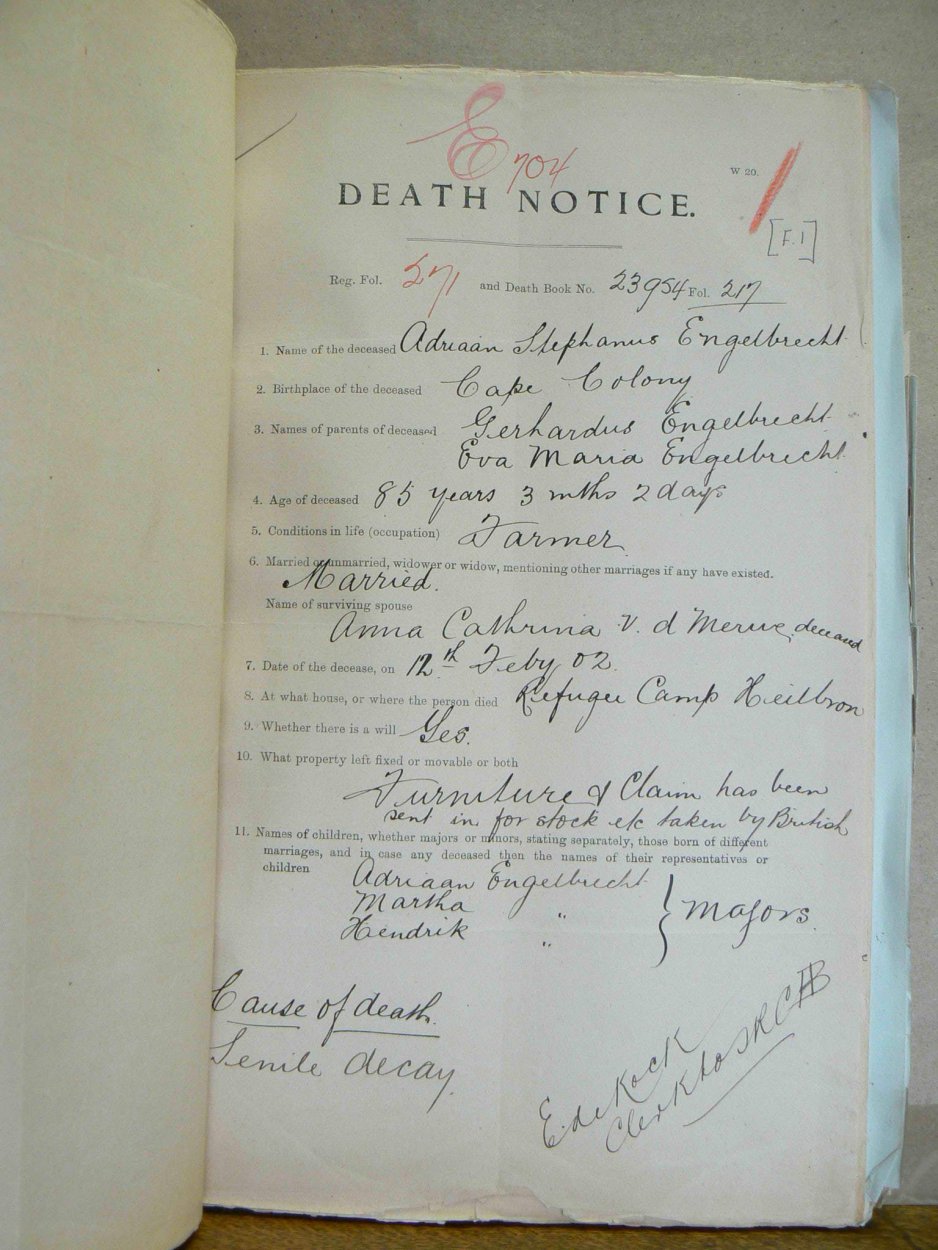 E 704
W 20.
DEATH NOTICE.
[F. 1]
Reg. Fol. 271 and Death Book No. 23954 Fol. 217
1. Name of the deceased Adriaan Stephanus Engelbrecht
2. Birthplace of the deceased Cape Colony
3. Names of parents of deceased Gerhardus Engelbrecht
Eva Maria Engelbrecht
4. Age of deceased 85 years 3 mths 2 days
5. Conditions in life (occupation) Farmer
6. Married or unmarried, widower or widow, mentioning other marriages if any have existed.
Married.
Name of surviving spouse
Anna Cathrina v. d Merwe deceased
7. Date of the decease, on 12th Feby 02.
8. At what house, or where the person died Refugee Camp Heilbron
9. Whether there is a will Yes.
10. What property left fixed or movable or both
Furniture & Claim has been
sent in for stock etc taken by British
11. Names of children, whether majors or minors, stating separately, those born of different
marriages, and in case any deceased then the names of their representatives or
children
Adriaan Engelbrecht
Martha "
Hendrik " } Majors.
Cause of death.
Senile decay.
E de Kock
Clerk to